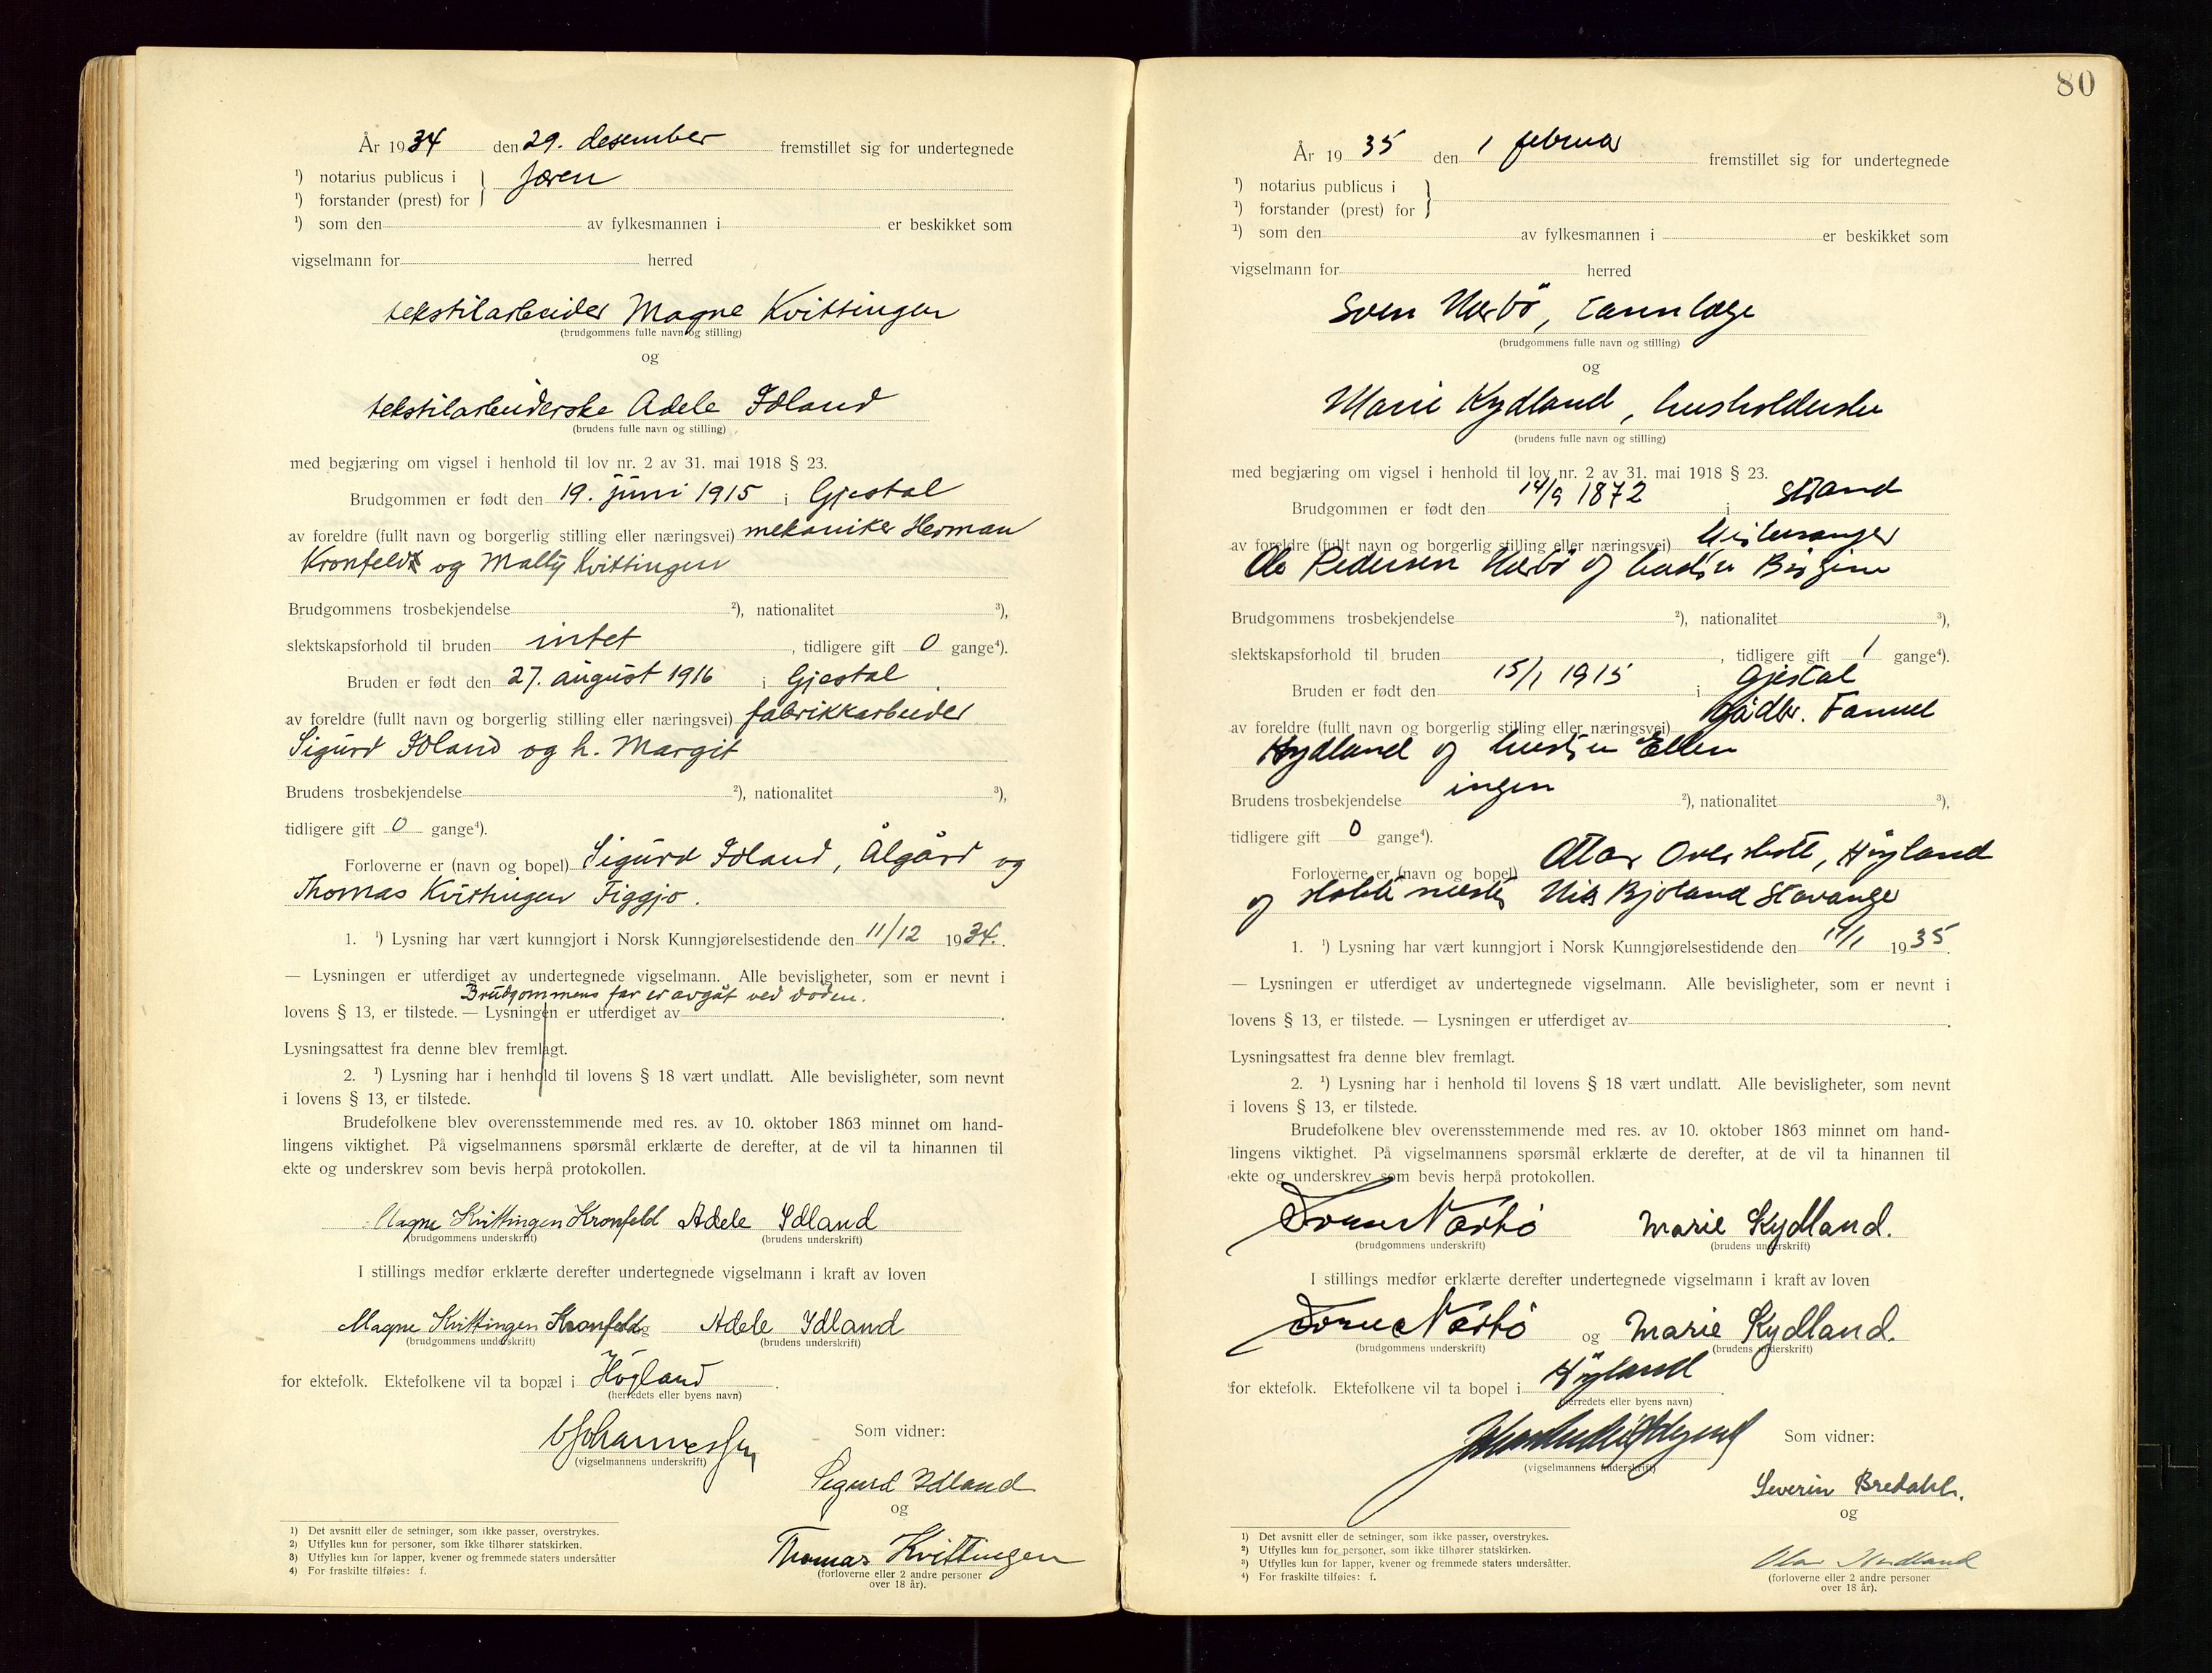 År 1934 den 29. desember fremstillet sig for undertegnede
¹) notarius publicus i } Jæren
¹) forstander (prest) for
¹) som den av fylkesmannen i er beskikket som
vigselmann for herred
tekstilarbeider Magne Kvittingen
(brudgommens fulle navn og stilling)
og
tekstilarbeiderske Adele Idland
(brudens fulle navn og stilling)
med begjæring om vigsel i henhold til lov nr. 2 av 31. mai 1918 § 23.
Brudgommen er født den 19. juni 1915 i Gjestal
av foreldre (fullt navn og borgerlig stilling eller næringsvei) mekaniker Herman
Kronfeld og Mally Kvittingen
Brudgommens trosbekjendelse ²), nationalitet ³),
slektskapsforhold til bruden intet , tidligere gift 0 gange⁴).
Bruden er født den 27. august 1916 i Gjestal
av foreldre (fullt navn og borgerlig stilling eller næringsvei) fabrikkarbeider
Sigurd Idland og h. Margit
Brudens trosbekjendelse ²), nationalitet ³),
tidligere gift 0 gange⁴).
Forloverne er (navn og bopel) Sigurd Idland, Ålgård og
Thomas Kvittingen Figgjo.
1. ¹) Lysning har vært kunngjort i Norsk Kunngjørelsestidende den 11/12 1934.
— Lysningen er utferdiget av undertegnede vigselmann. Alle bevisligheter, som er nevnt i
Brudgommens far er avgåt ved døden.
lovens § 13, er tilstede. — Lysningen er utferdiget av .
Lysningsattest fra denne blev fremlagt.
2. ¹) Lysning har i henhold til lovens § 18 vært undlatt. Alle bevisligheter, som nevnt
i lovens § 13, er tilstede.
Brudefolkene blev overensstemmende med res. av 10. oktober 1863 minnet om hand-
lingens viktighet. På vigselmannens spørsmål erklærte de derefter, at de vil ta hinannen til
ekte og underskrev som bevis herpå protokollen.
Magne Kvittingen Kronfeld Adele Idland
(brudgommens underskrift) (brudens underskrift)
I stillings medfør erklærte derefter undertegnede vigselmann i kraft av loven
Magne Kvittingen Kronfeld og Adele Idland
(brudgommens underskrift) (brudens underskrift)
for ektefolk. Ektefolkene vil ta bopæl i Høyland .
(herredets eller byens navn)
Johannessen Som vidner:
(vigselmannens underskrift)
Sigurd Idland
og
Thomas Kvittingen
(forloverne eller 2 andre personer
over 18 år).
1) Det avsnitt eller de setninger, som ikke passer, overstrykes.
2) Utfylles kun for personer, som ikke tilhører statskirken.
3) Utfylles kun for lapper, kvener og fremmede staters undersåtter
4) For fraskilte tilføies: f.
80
År 1935 den 1 februar fremstillet sig for undertegnede
¹) notarius publicus i }
¹) forstander (prest) for
¹) som den av fylkesmannen i er beskikket som
vigselmann for herred
Sven Nærbö, tannlæge
(brudgommens fulle navn og stilling)
og
Marie Kydland, husholderske
(brudens fulle navn og stilling)
med begjæring om vigsel i henhold til lov nr. 2 av 31. mai 1918 § 23.
Brudgommen er født den 14/9 1872 i Strand
av foreldre (fullt navn og borgerlig stilling eller næringsvei)
Ole Pedersen Nærbö og hustru
Brudgommens trosbekjendelse ²), nationalitet ³),
slektskapsforhold til bruden , tidligere gift 1 gange⁴).
Bruden er født den 15/1 1915 i Gjestal
av foreldre (fullt navn og borgerlig stilling eller næringsvei) gådbr. Fanuel
Kydland og hustru Ellen
Brudens trosbekjendelse ingen ²), nationalitet ³),
tidligere gift 0 gange⁴).
Forloverne er (navn og bopel) Høyland
og Bjoland Stavanger
1. ¹) Lysning har vært kunngjort i Norsk Kunngjørelsestidende den 11/1 1935.
— Lysningen er utferdiget av undertegnede vigselmann. Alle bevisligheter, som er nevnt i
lovens § 13, er tilstede. — Lysningen er utferdiget av .
Lysningsattest fra denne blev fremlagt.
2. ¹) Lysning har i henhold til lovens § 18 vært undlatt. Alle bevisligheter, som nevnt
i lovens § 13, er tilstede.
Brudefolkene blev overensstemmende med res. av 10. oktober 1863 minnet om hand-
lingens viktighet. På vigselmannens spørsmål erklærte de derefter, at de vil ta hinannen til
ekte og underskrev som bevis herpå protokollen.
Sven Nærbö Marie Kydland.
(brudgommens underskrift) (brudens underskrift)
I stillings medfør erklærte derefter undertegnede vigselmann i kraft av loven
Sven Nærbö og Marie Kydland.
(brudgommens underskrift) (brudens underskrift)
for ektefolk. Ektefolkene vil ta bopel i Høyland .
(herredets eller byens navn)
Som vidner:
(vigselmannens underskrift)
Severin Bredahl.
og
(forloverne eller 2 andre personer
over 18 år).
1) Det avsnitt eller de setninger, som ikke passer, overstrykes.
2) Utfylles kun for personer, som ikke tilhører statskirken.
3) Utfylles kun for lapper, kvener og fremmede staters undersåtter.
4) For fraskilte tilføies: f.